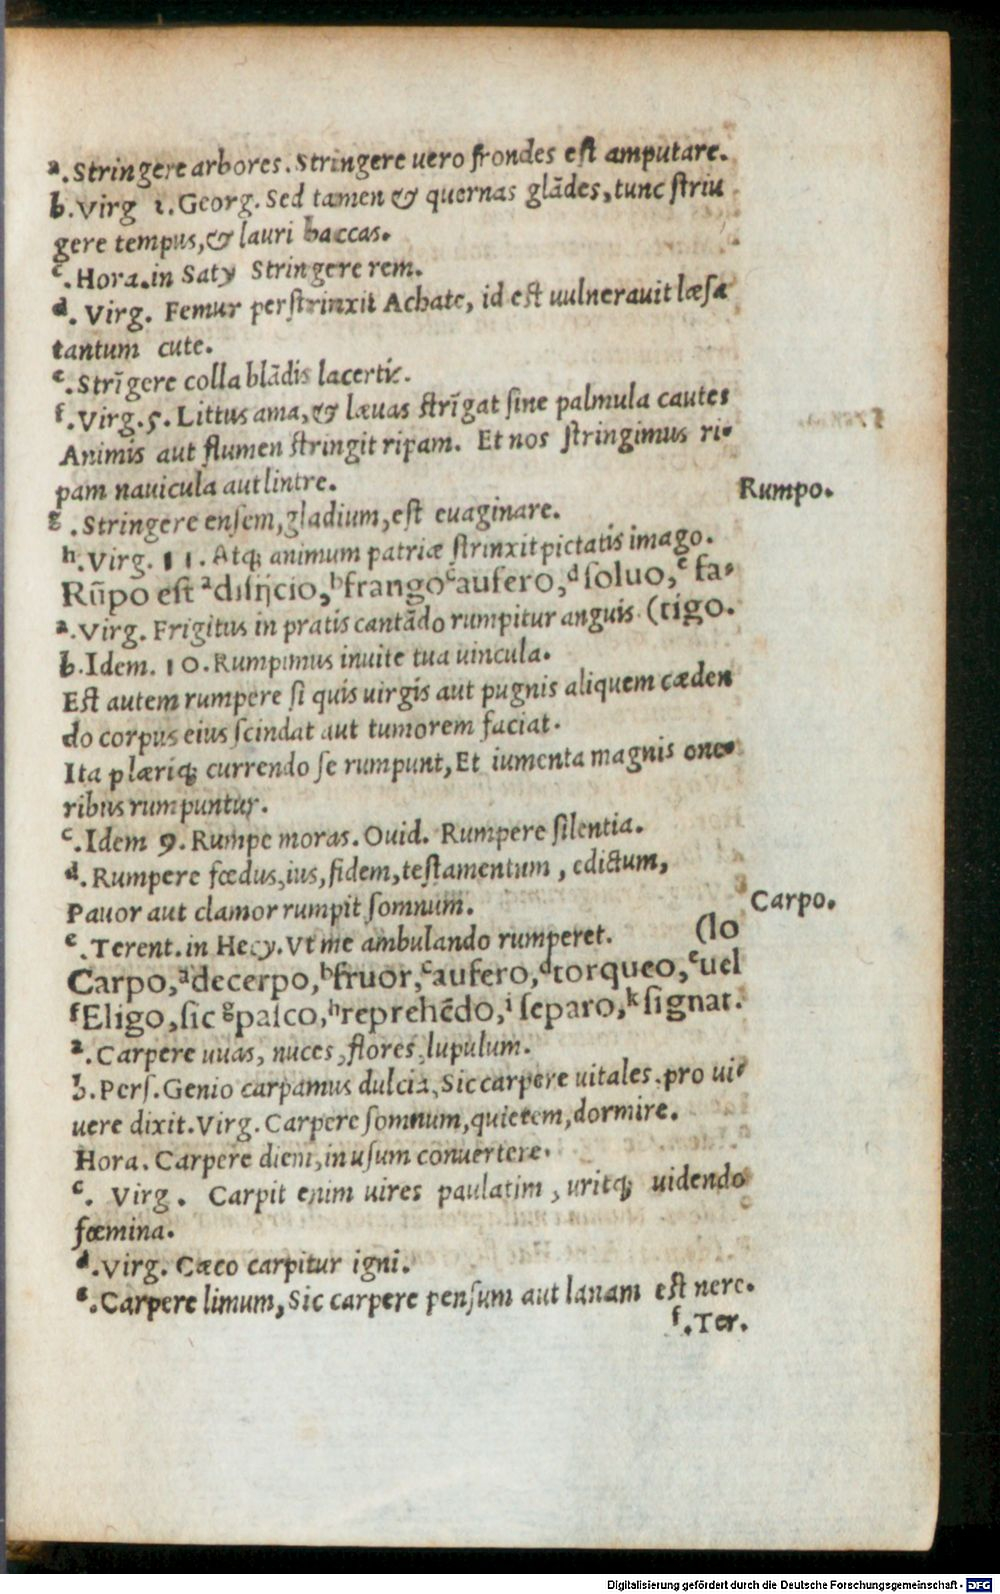 a. Stringere arbores. Stringere uero frondes est amputare.
b. Virg 1. Georg. Sed tamen & quernas glādes, tunc striu
gere tempus, & lauri baccas.
c. Hora. in Saty Stringere rem.
d. Virg. Femur perstrinxit Achate, id est uulnerauit læsa
tantum cute.
e. Strīgere colla blādis lacertis.
f. Virg. 5. Littus ama, & læuas strīgat sine palmula cautes
Animis aut flumen stringit ripam. Et nos stringimus ri-
pam nauicula aut lintre.
Rumpo.
g. Stringere ensem, gladium, est euaginare.
h. Virg. 11. Atq; animum patriæ strinxit pietatis imago.
Rūpo est a disijcio, b frango c aufero, d soluo, e fa-
(tigo.
a. Virg. Frigitus in pratis cantādo rumpitur anguis
b. Idem. 10. Rumpimus inuite tua uincula.
Est autem rumpere si quis uirgis aut pugnis aliquem cæden
do corpus eius scindat aut tumorem faciat.
Ita plæriq; currendo se rumpunt, Et iumenta magnis one-
ribus rumpuntur.
c. Idem 9. Rumpe moras. Ouid. Rumpere silentia.
d. Rumpere fœdus, ius, fidem, testamentum, edictum,
Pauor aut clamor rumpit somnum.
Carpo.
e. Terent. in Hecy. Vt me ambulando rumperet.
(lo
Carpo, a decerpo, b fruor, c aufero, d torqueo, e uel
f Eligo, sic g pasco, h reprehēdo, i separo, k signat.
a. Carpere uuas, nuces, flores, lupulum.
b. Pers. Genio carpamus dulcia, Sic carpere uitales, pro ui-
uere dixit. Virg. Carpere somnum, quietem, dormire.
Hora. Carpere diem, in usum conuertere.
c. Virg. Carpit enim uires paulatim, uritq; uidendo
fœmina.
d. Virg. Cæco carpitur igni.
e. Carpere limum, Sic carpere pensum aut lanam est nere.
f. Ter.
Digitalisierung gefördert durch die Deutsche Forschungsgemeinschaft - DFG